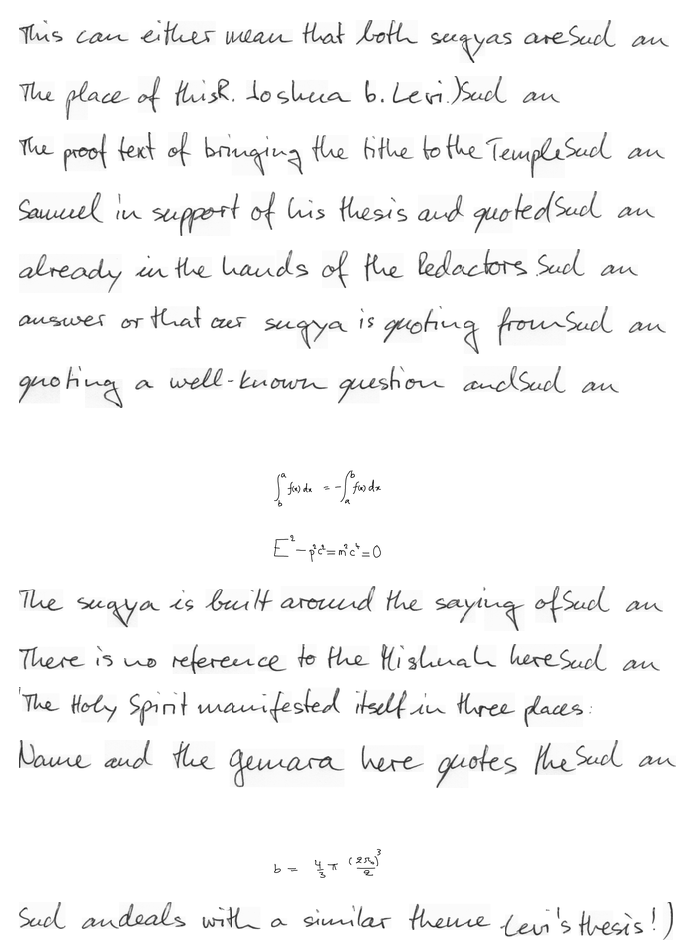 This can either mean that both sugyas are Sud an
The place of this R. Joshua b. Levi.) Sud an
The proof text of bringing the tithe to the Temple Sud an
Samuel in support of his thesis and quoted Sud an
already in the hands of the Redactors. Sud an
answer or that our sugya is quoting from Sud an
quoting a well-known question and Sud an
∫_b^a f(x) dx = -∫_a^b f(x) dx
E² - p²c² = m²c⁴ = 0
The sugya is built around the saying of Sud an
There is no reference to the Mishnah here Sud an
'The Holy Spirit manifested itself in three places:
Name and the gemara here quotes the Sud an
b = 4/3 π (2r₀)³/2
Sud an deals with a similar theme Levi's thesis!)